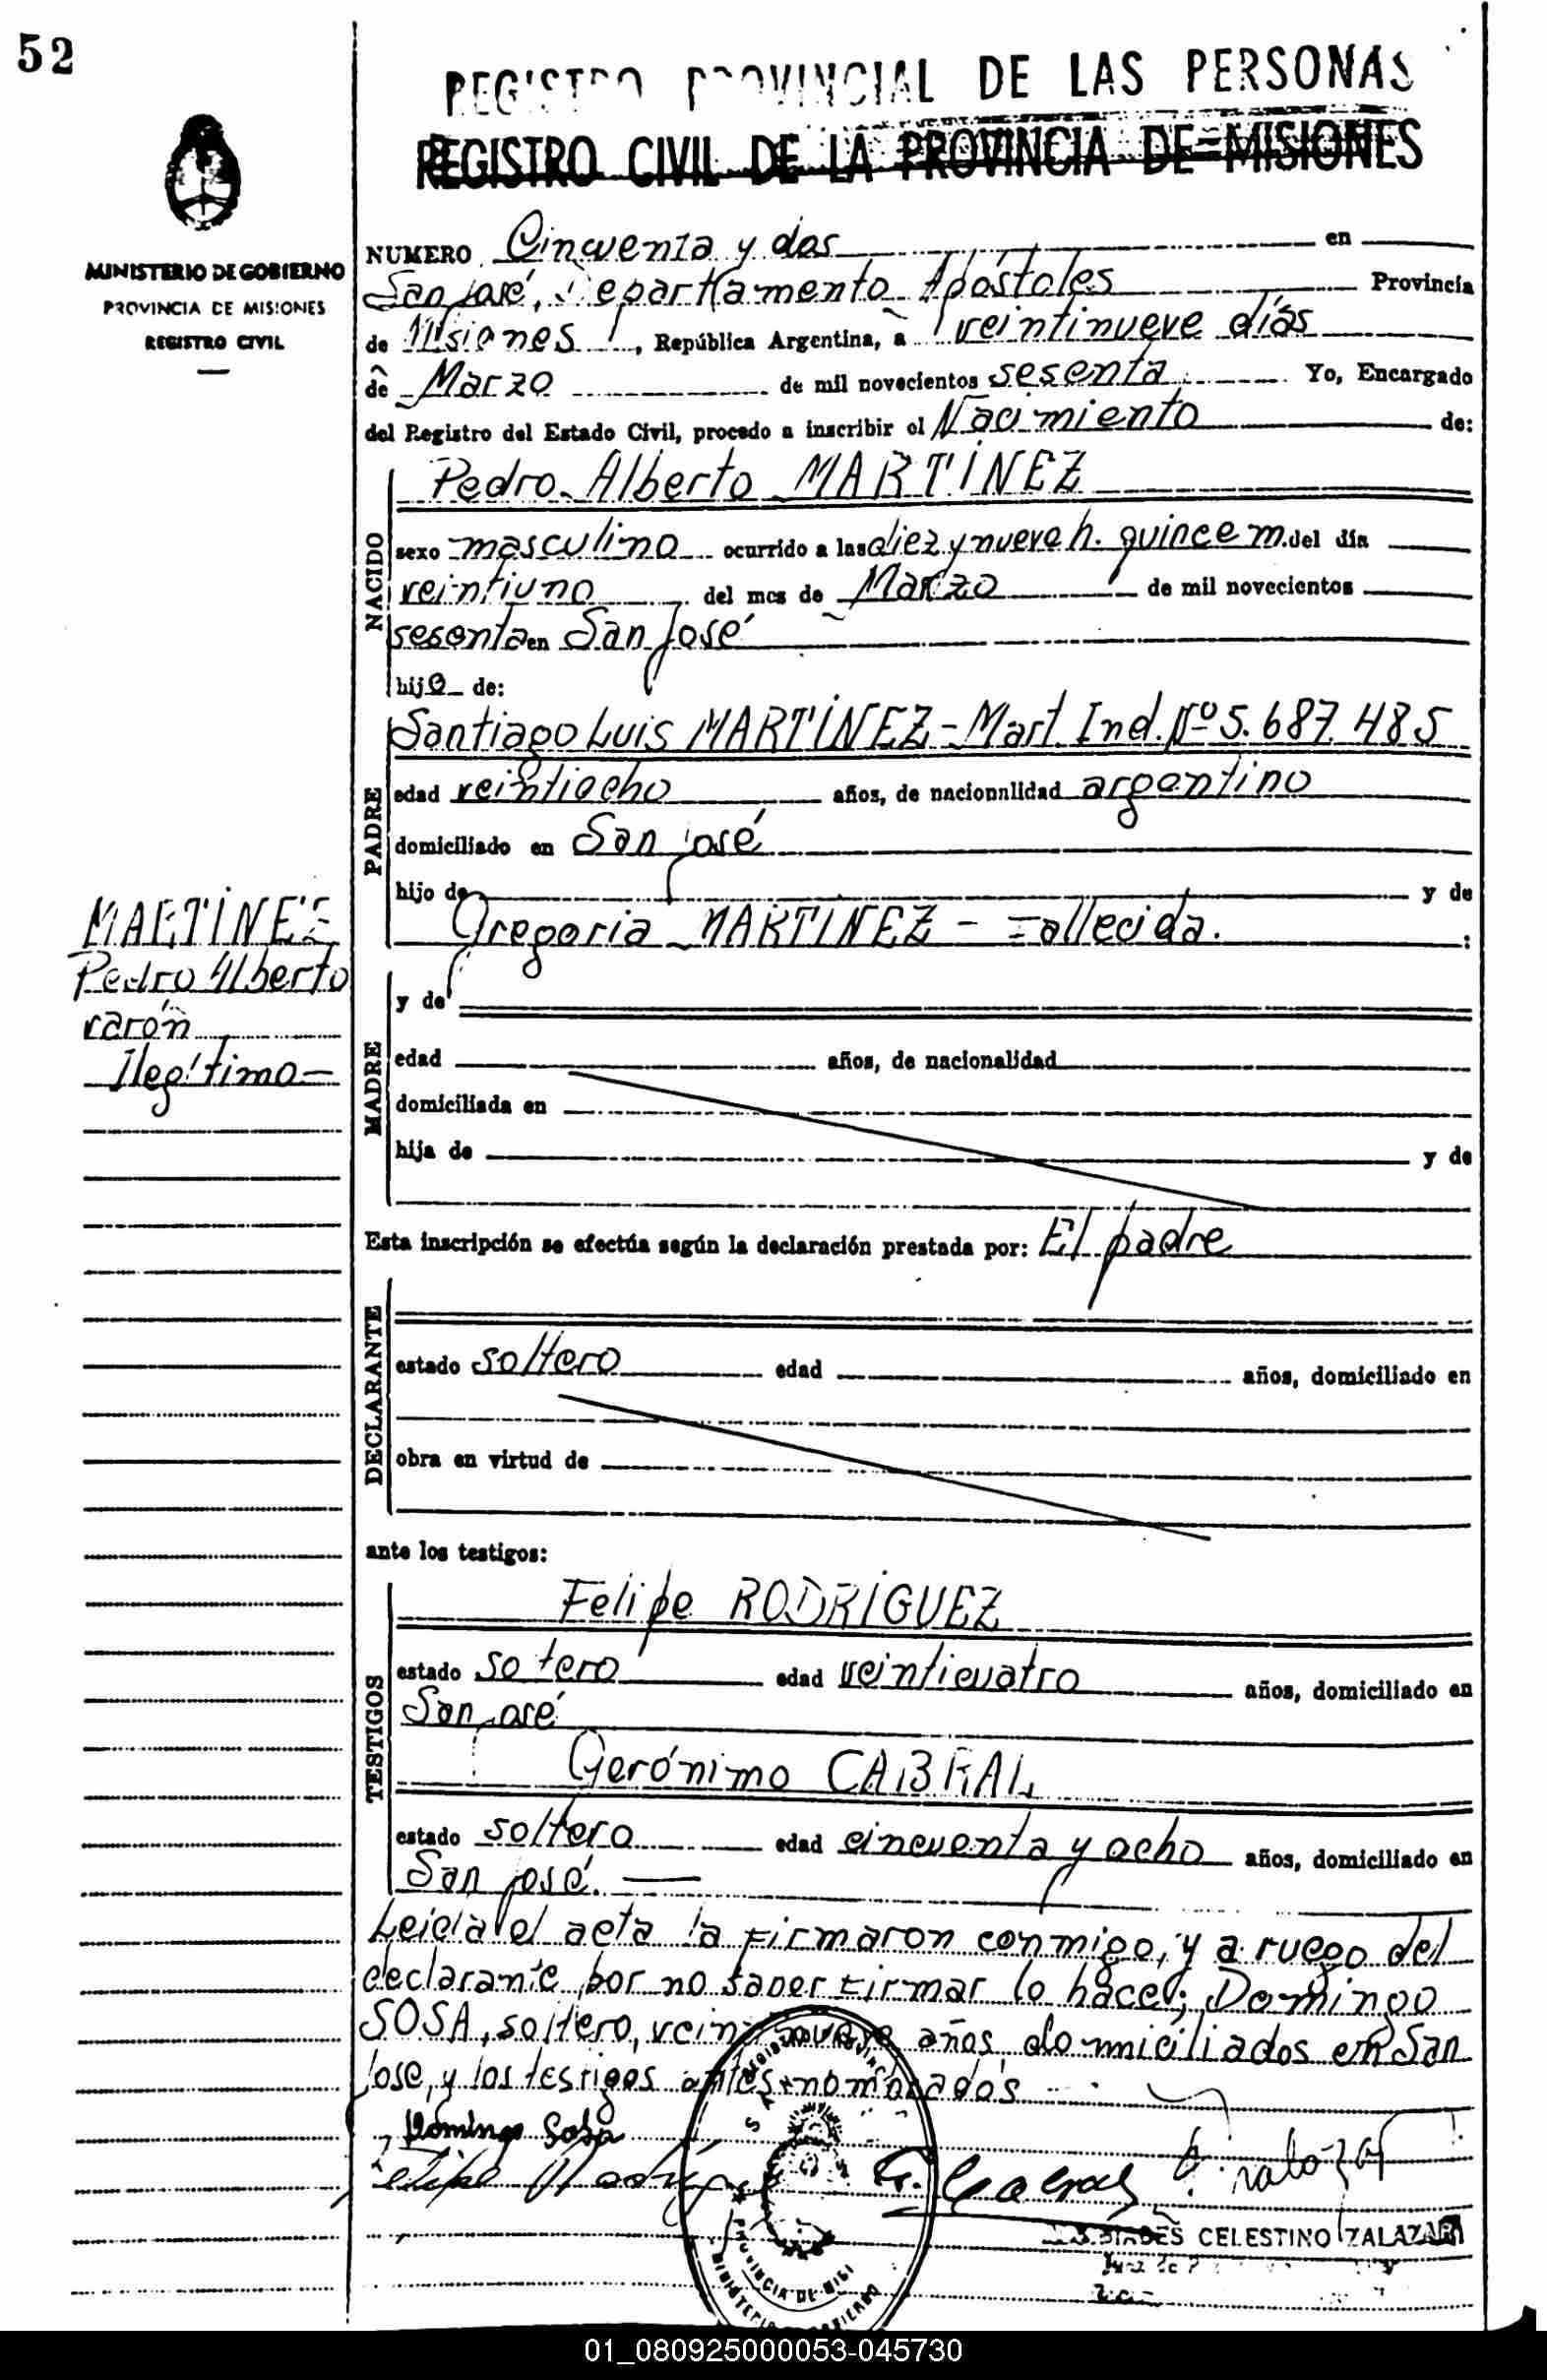 52
REGISTRO PROVINCIAL DE LAS PERSONAS
REGISTRO CIVIL DE LA PROVINCIA DE MISIONES
MINISTERIO DE GOBIERNO
PROVINCIA DE MISIONES
REGISTRO CIVIL
NUMERO Cincuenta y dos en
San José, Departamento Apóstoles Provincia
de Misiones, República Argentina, a veintinueve días
de Marzo de mil novecientos sesenta Yo, Encargado
del Registro del Estado Civil, procedo a inscribir el Nacimiento de:
NACIDO
Pedro Alberto MARTÍNEZ
sexo masculino ocurrido a las diez y nueve h. quince m. del día
veintiuno del mes de Marzo de mil novecientos
sesenta en San José
hijo de:
PADRE
Santiago Luis MARTÍNEZ - Mart. Ind. Nº 5.687.485
edad veintiocho años, de nacionalidad argentino
domiciliado en San José
hijo de y de
Gregoria MARTINEZ - Fallecida. :
MARTÍNEZ
Pedro Alberto
varón
Ilegítimo-
MADRE
y de
edad años, de nacionalidad
domiciliada en
hija de y de
Esta inscripción se efectúa según la declaración prestada por: El padre
DECLARANTE
estado soltero edad años, domiciliado en
obra en virtud de
ante los testigos:
TESTIGOS
Felipe RODRÍGUEZ
estado soltero edad veinticuatro años, domiciliado en
San José
Gerónimo CABRAL
estado soltero edad cincuenta y ocho años, domiciliado en
San José.
Leída el acta la firmaron conmigo, y a ruego del
declarante por no saber firmar lo hace; Domingo
SOSA, soltero, veintinueve años, domiciliados en San
José, y los testigos antes nombrados
Domingo Sosa
Felipe Rodríguez G. Cabral
CELESTINO ZALAZAR
PROVINCIA DE MISI
MINISTERIO GOBIERNO
01_080925000053-045730